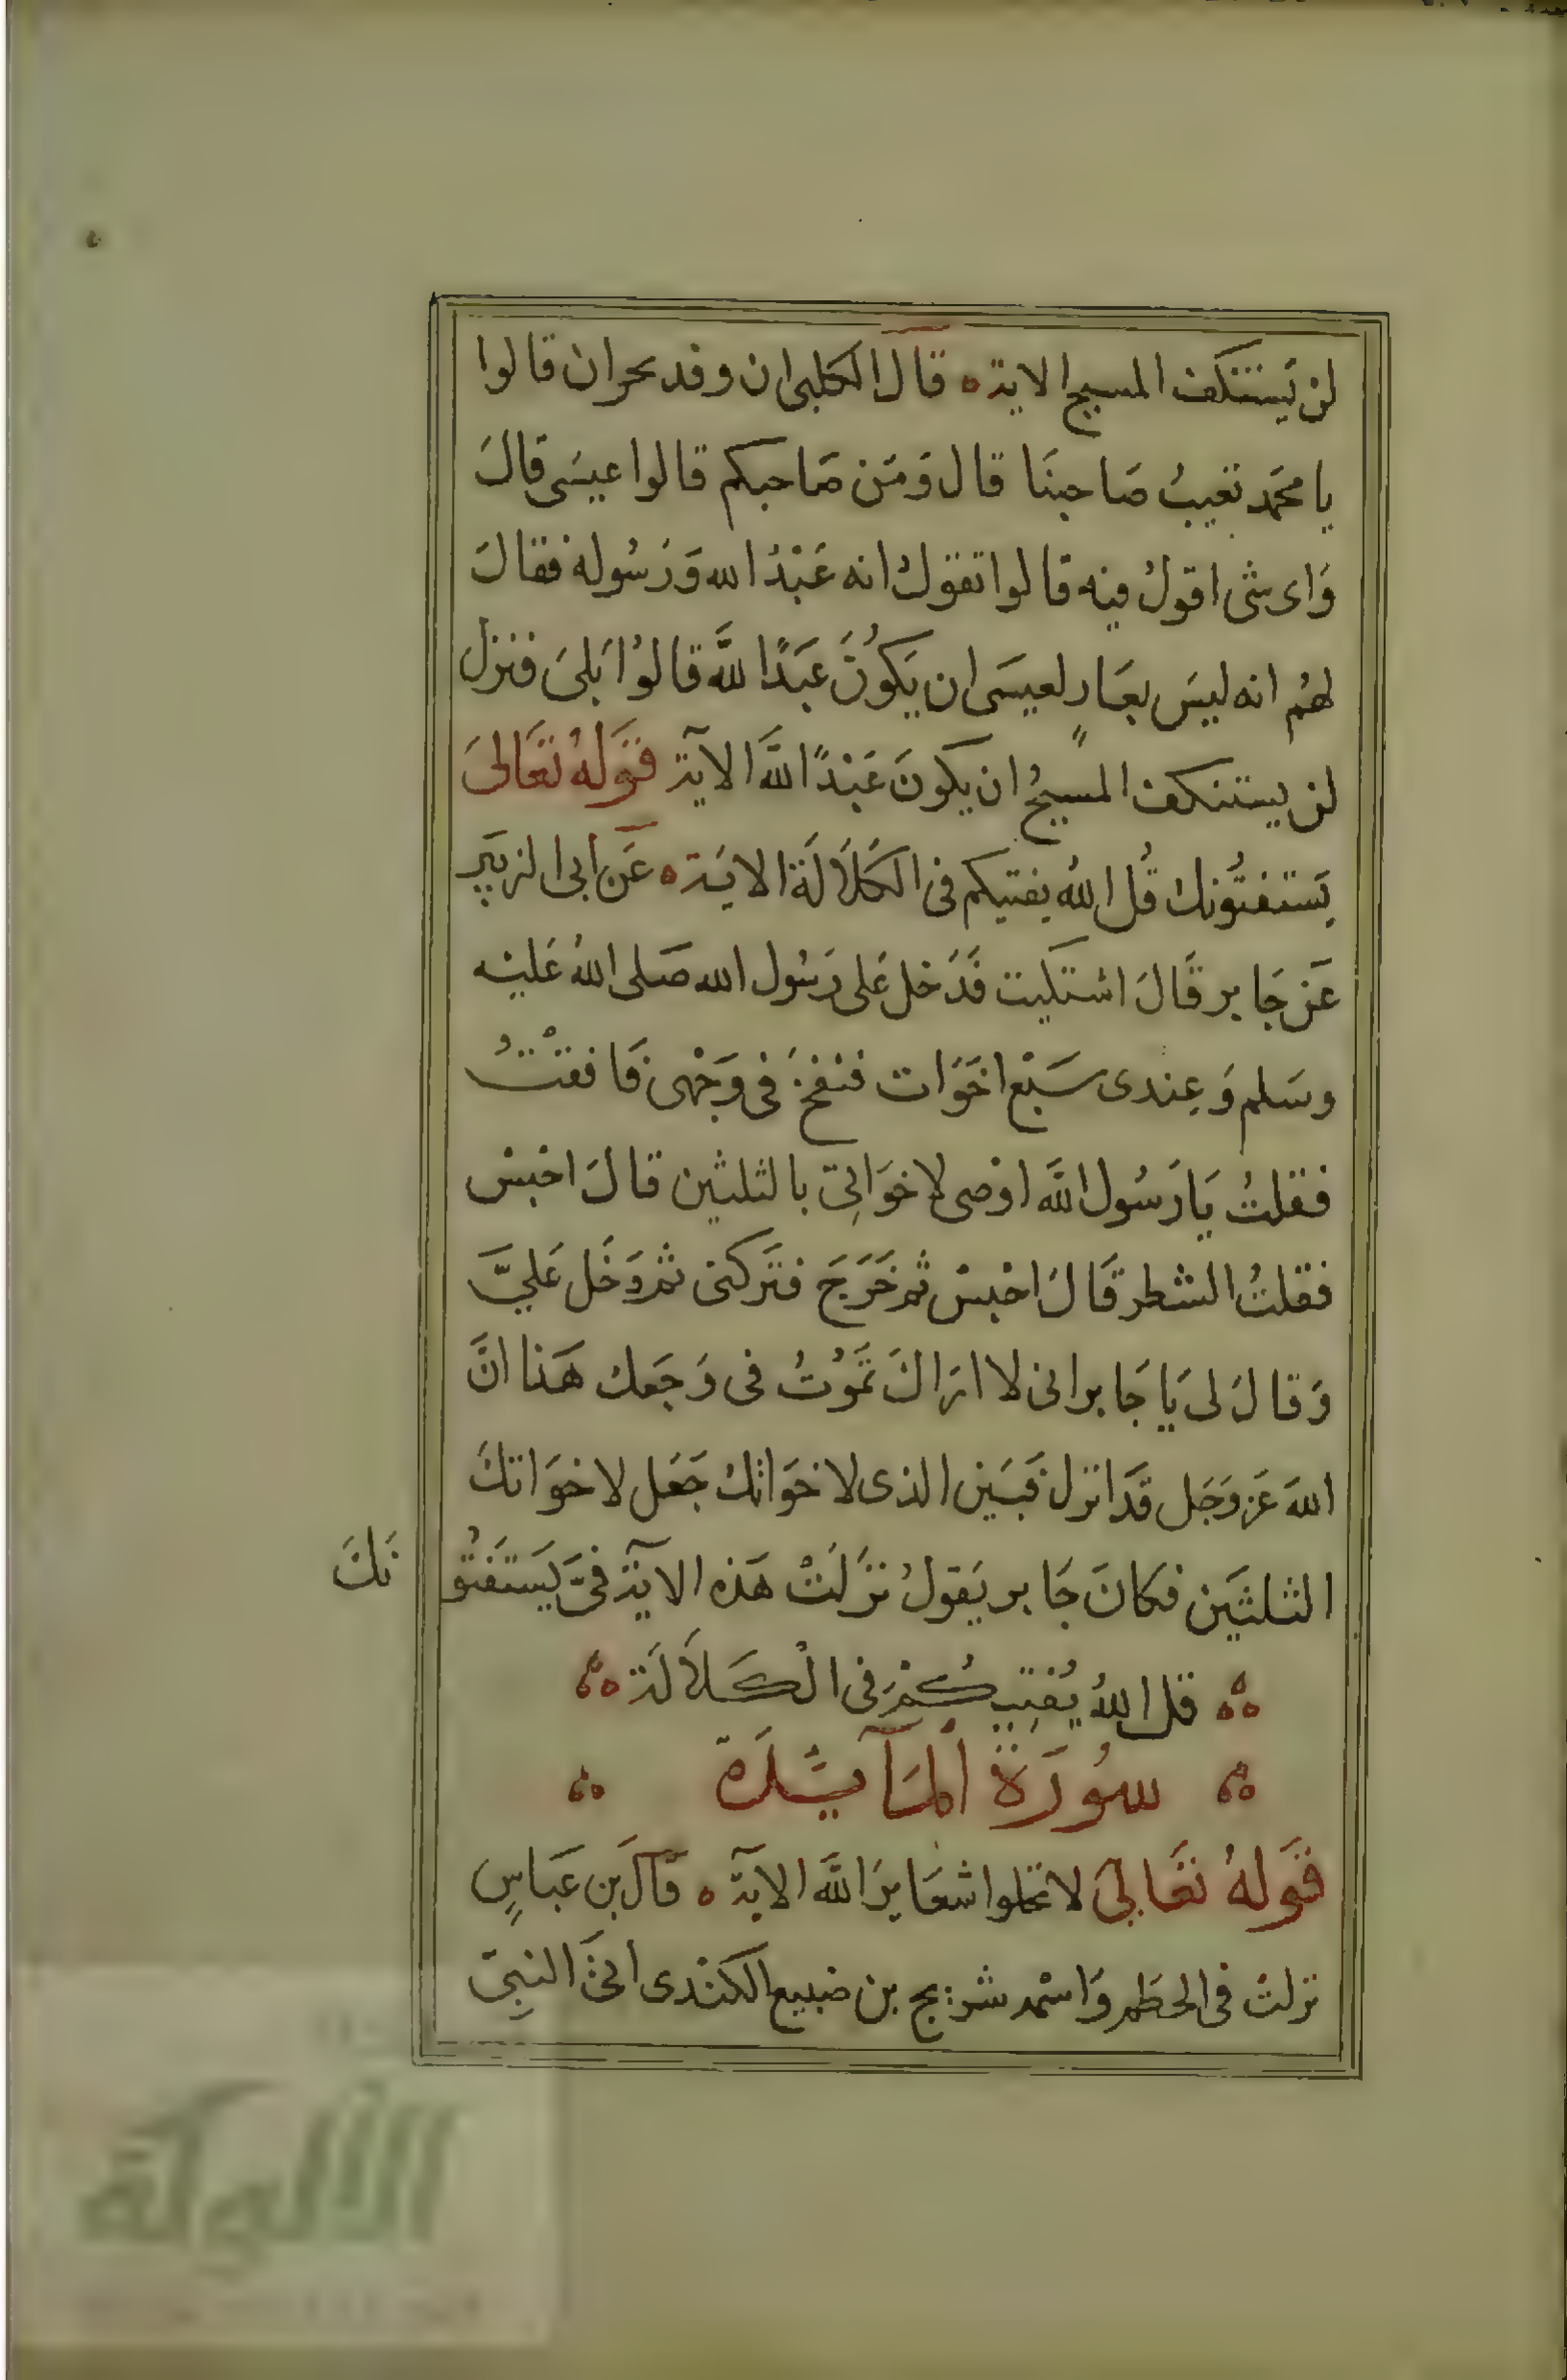 لن يستنكف المسيح الاية ه قال الكلبى ان وفد بحران قالوا
يا محمد تعيبُ صَاحبنَا قال وَمَن صَاحبكم قالوا عيسَى قالَ
وَاى شى اقولُ فيه قالوا تقولُ انه عَبْدُ الله وَرَسُوله فقالَ
لهُم انه ليسَ بعَارٍ لعيسَى ان يَكوُنَ عَبَدًا للَّه قالوُا بَلىَ فنزلَ
لن يستنكف المسيحُ ان يكونَ عَبْدًا للَّه الآية قَولهُ تعَالىَ
يَستفتُونك قُل اللهُ يفتيكم فى الكَلاَلَة الايَة ه عَن ابى الزبَير
عَن جَابر قَالَ اشتكيت فَدَخل عَلى رَسُول الله صَلى اللهُ عَليْه
وسَلم وَعِندى سَبْع اخَوَات فنفخَ فى وَجْهى فَافقْتُ
فقلتُ يَا رَسُول اللَّه اوْصى لاخوَاتِى بالثلثين قالَ احْبسْ
فقلتُ الشطر قَالَ احْبسْ ثم خَرَجَ فتَركنى ثم دَخَل عَليَّ
وَقالَ لى يَا جَابر انى لا ارَاكَ تَموُتُ فى وَجَعك هَذا انَّ
اللهَ عَز وَجَل قَد انزل فَبَيَن الذى لاخوَاتكْ جَعَل لاخوَاتكَ
الثلثَين فكانَ جَابر يَقولُ نزَلَتْ هَذه الآية فىَّ يَستَفتُو نَكَ
قل اللهُ يُفتِيكُمْ فى الْكَلاَلَة
سُورَةُ المَآئدَة
قَولهُ تعَالىَ لا تحلوا شعَايرَ اللَّه الآية ه قالَ بن عَباسٍ
نزلتْ فى الحطَم وَاسْمه شريح بن ضبيع الكنْدى اتىَ النبِىّ
الألوكة